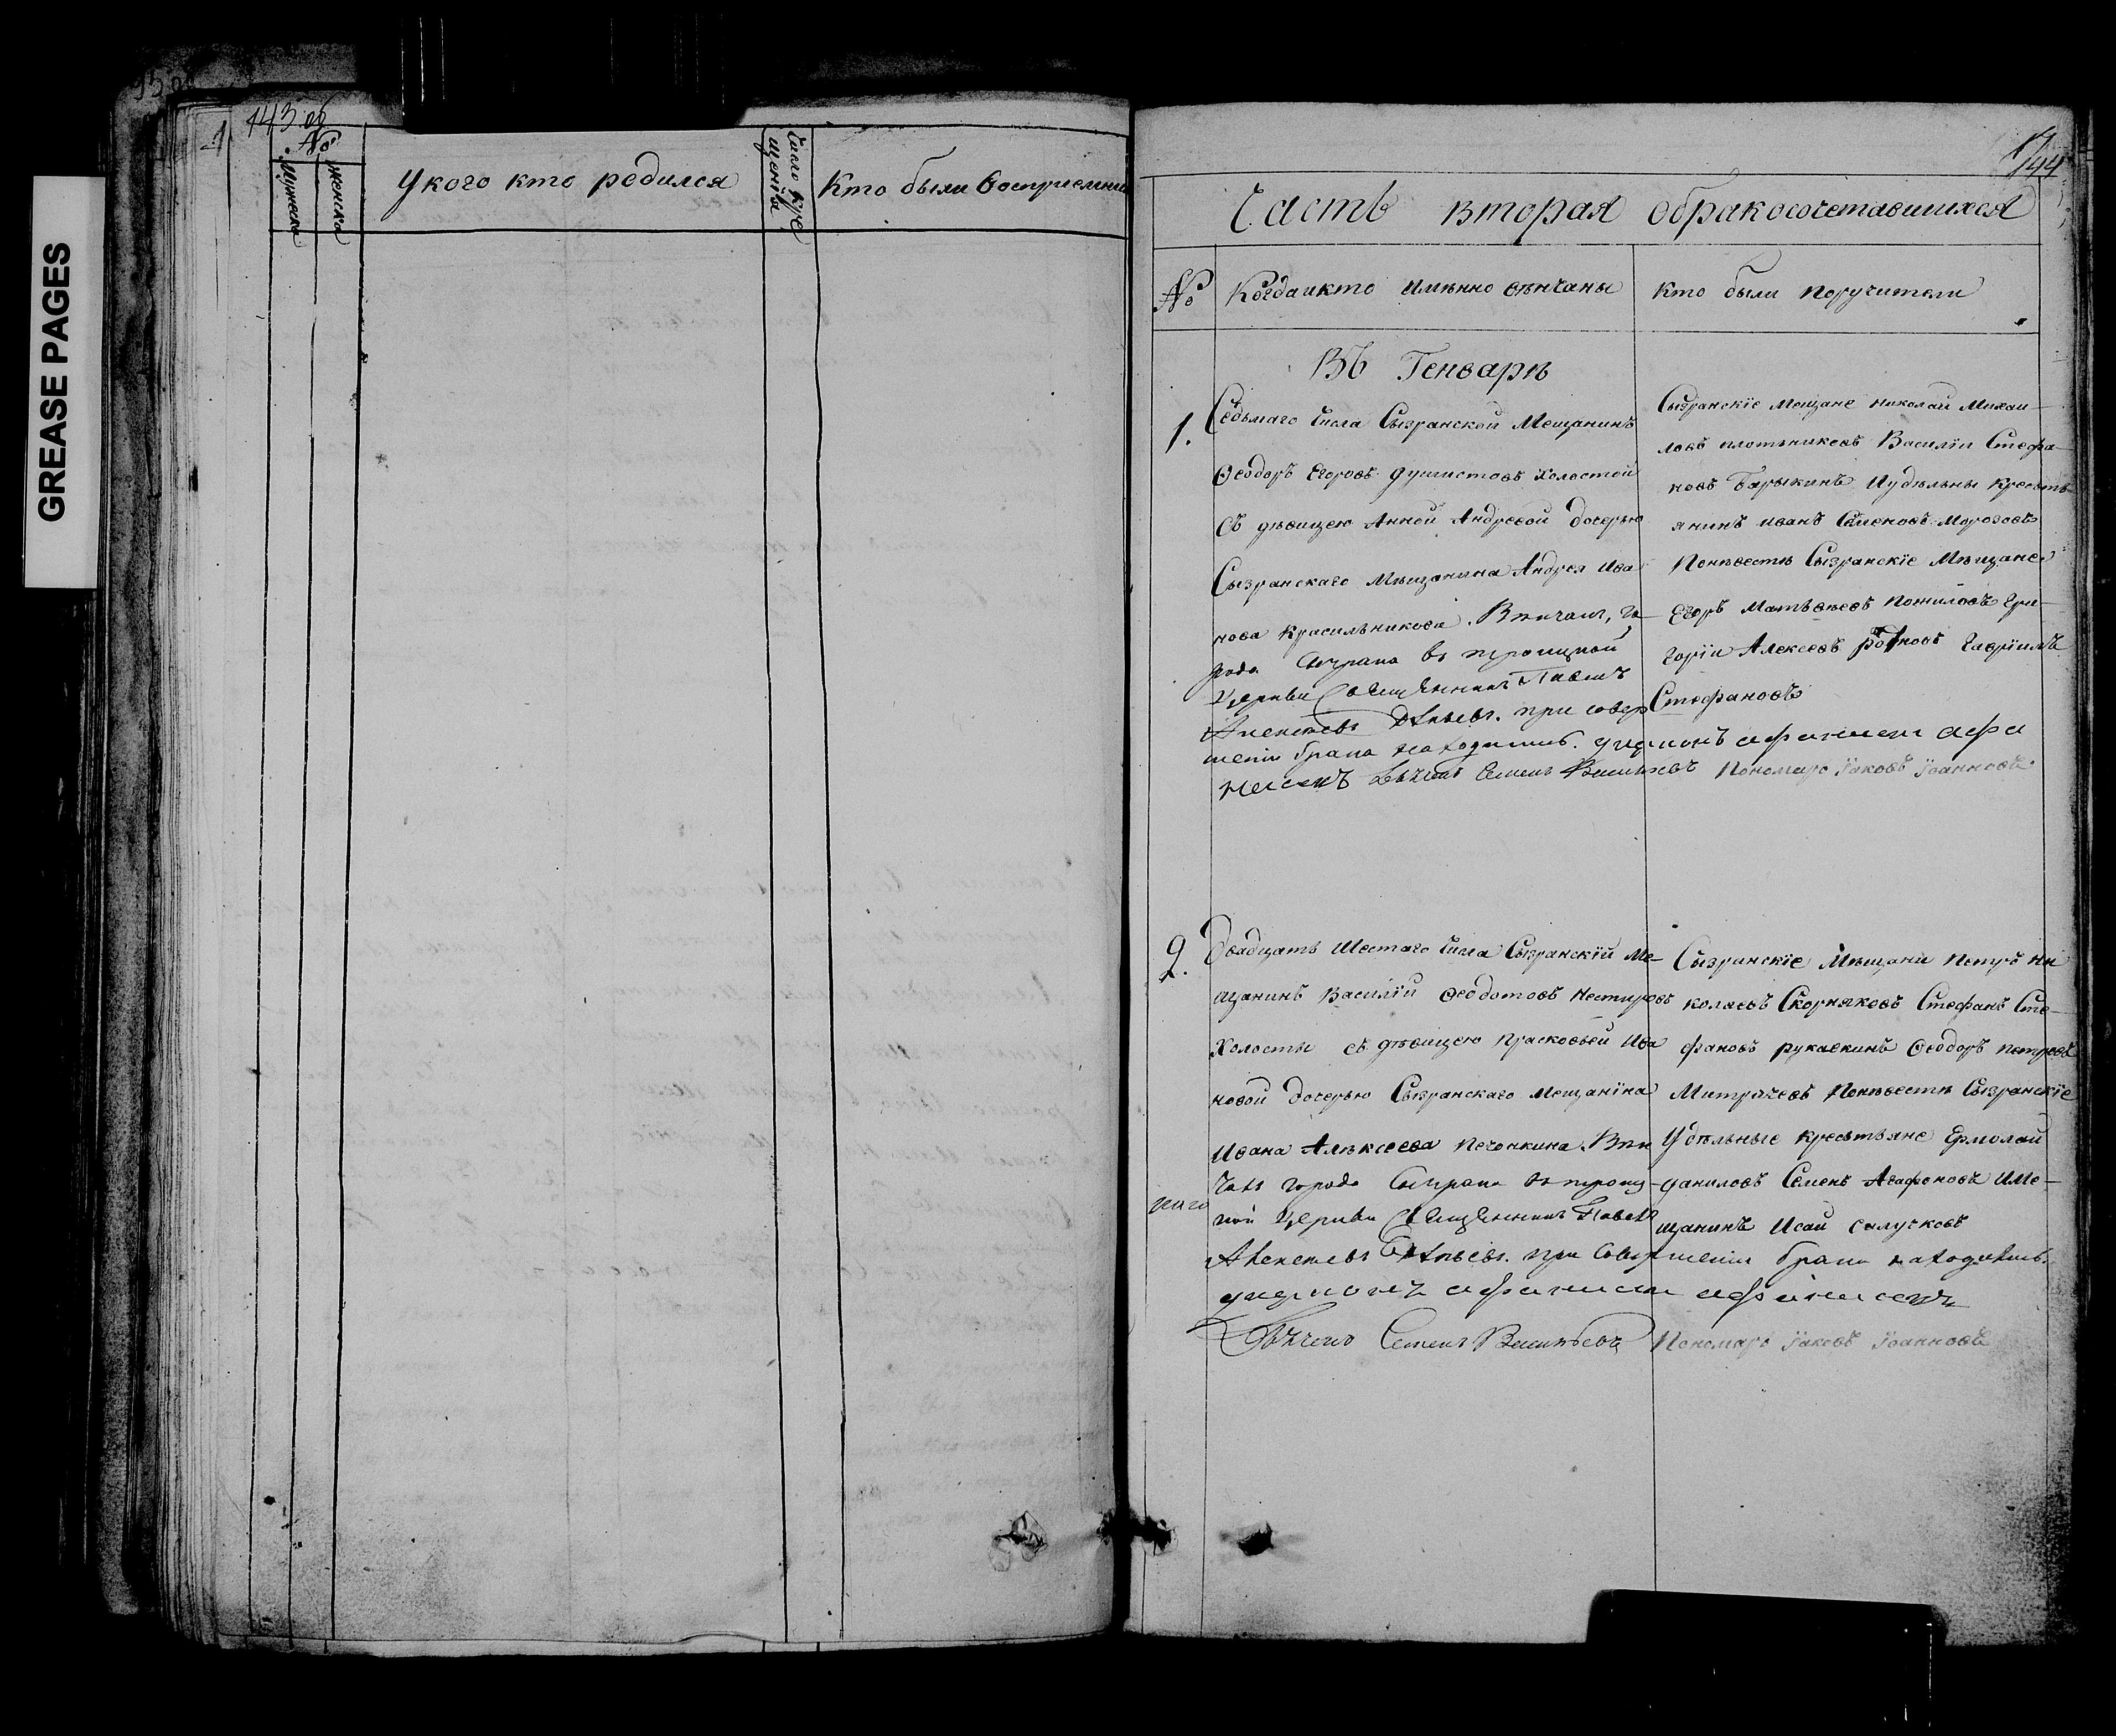 GREASE PAGES
143 об
№
мужеска
женска
У кого кто родился
Число кре
щенія
Кто были восприемни
144
Часть вторая обракосочетавшихся
№ Когда и кто имѣнно вѣнчаны
Кто были поручители
ВЪ Генварѣ
1.
Седьмаго числа Сызранской Мещанинъ
Ѳеодоръ Егоровъ Душистовъ холостой
Съ дѣвицею Анной Андревой дочерью
Сызранскаго Мѣщанина Андрея Ива
нова Красильникова. Вѣнчалъ, го
рода Сызрана въ троицкой
Церкви Священникъ Павелъ
Алексѣевъ при совер
шеніи брака находились. диаконъ афанасеи афа
насевъ Дьячекъ Семенъ Васильевъ Пономарь Іаковъ Іоанновъ
Сызранскіе Мещане Николай Михаи
ловъ плотниковъ Василіи Стефа
новъ Барыкинъ Иудѣльны кресть
янинъ иванъ Семеновъ Морозовъ
Поневестѣ Сызранскіе Мѣщане
Егоръ Матвѣевъ Пониловъ Гри
горіи Алексеевъ Гавріилъ
Стефановъ
2.
Двадцать Шестаго Числа Сызранскій Ме
щанинъ Василій Ѳеодотовъ Нестировъ
Холосты съ дѣвицею Прасковьей Ива
новой дочерью Сызранскаго Мещаніна
Ивана Алѣксеева Печонкина. Вѣн
чалъ города Сызрана въ троиц
кой Церкви Священникъ Павелъ
Алексѣевъ при Совершеніи брака находились.
диаконъ афанасеи афанасевъ
Дьячекъ Семенъ Васильевъ Пономарь Іаковъ Іоанновъ
Сызранскіе Мѣщани Петръ Ни
колаевъ Скорняковъ Стефанъ Сте
фановъ рукавкинъ Ѳеодоръ Петровъ
Митрячевъ Поневестѣ Сызранскіе
Удѣльные крестьяне Ермолай
даниловъ Семенъ Агафоновъ иМе
щанинъ Исай Салусковъ